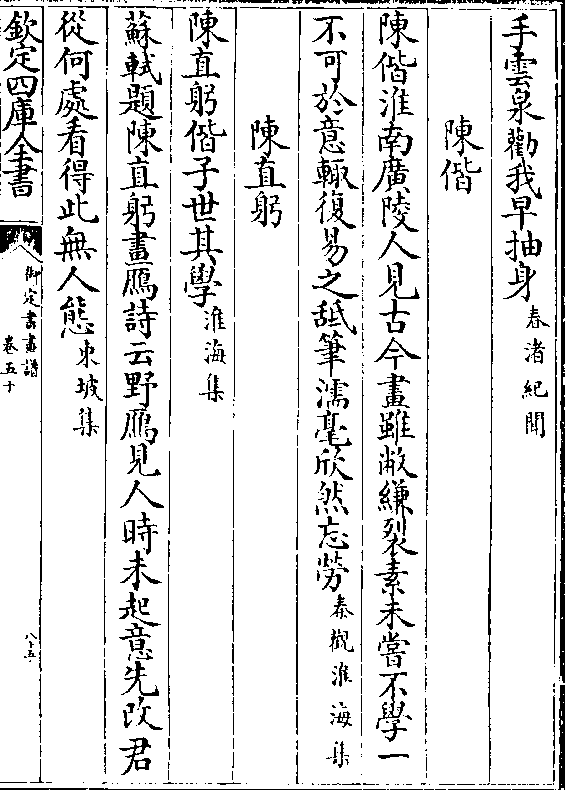 手雲泉勸我早抽身春渚紀聞
陳偕
陳偕淮南廣陵人見古今畫雖敝縑裂素未嘗不學一
不可於意輒復易之舐筆濡毫欣然忘勞秦觀淮海集
陳直躬
陳直躬偕子世其學淮海集
蘇軾題陳直躬畫鴈詩云野鴈見人時未起意先改君
從何處看得此無人態東坡集
欽定四庫全書
御定書畫譜
卷五十
八十五